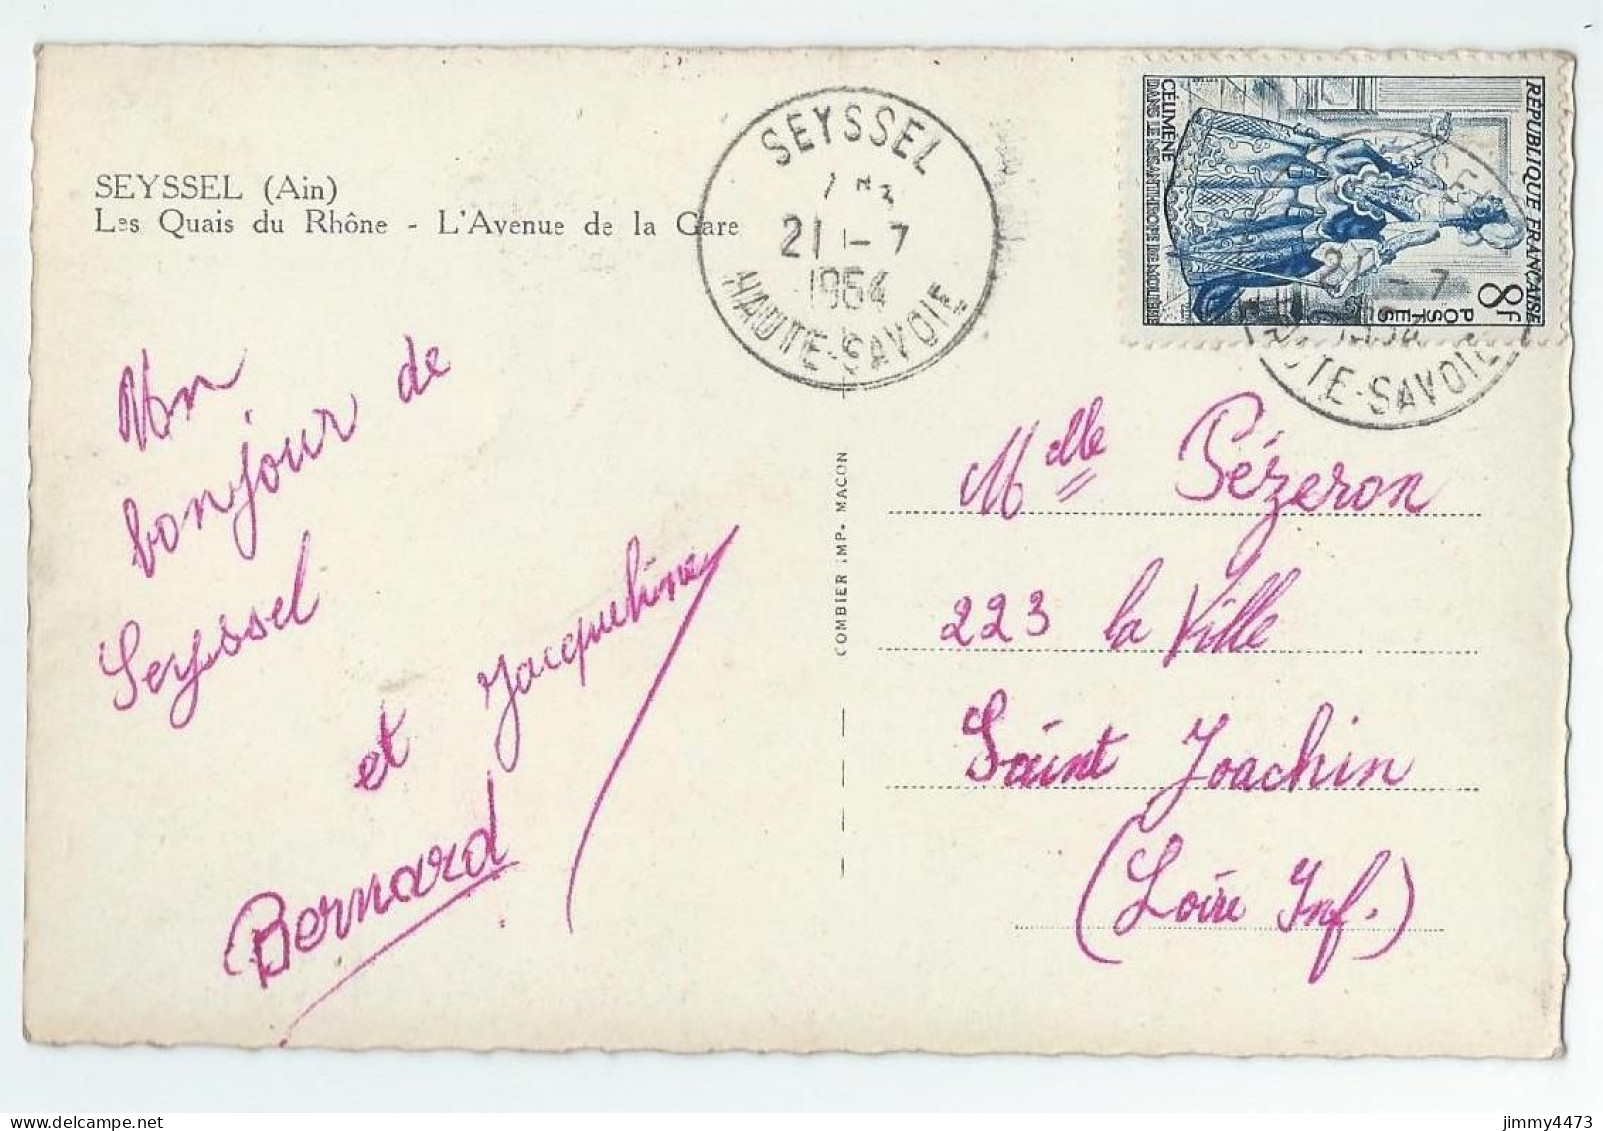 SEYSSEL (Ain)
Les Quais du Rhône - L'Avenue de la Gare
SEYSSEL
21 - 7
1954
HAUTE-SAVOIE
RÉPUBLIQUE FRANÇAISE
8F
POSTES
CÉLIMÈNE
DANS LE MISANTHROPE DE MOLIÈRE
21 - 7
HAUTE-SAVOIE
Un
bonjour de
Seyssel
et Jacqueline
Bernard
COMBIER IMP. MACON
Melle Pézeron
223 la Ville
Saint Joachin
(Loire Inf.)
jimmy4473